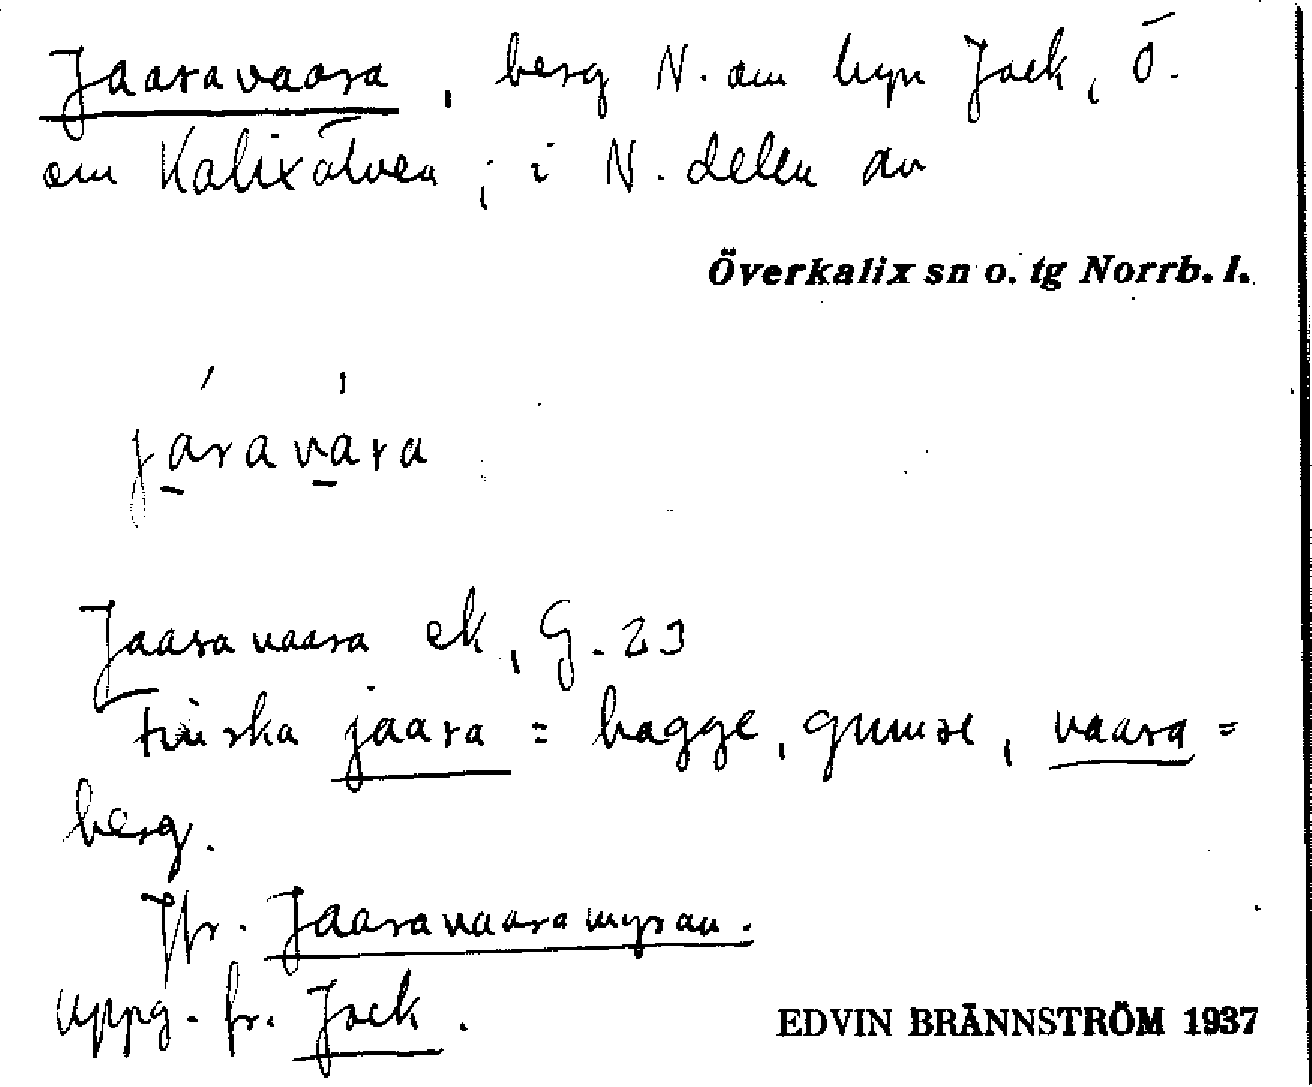 Jaaravaara, berg N. om byn Jock, Ö.
om Kalixälven; i N. delen av
Överkalix sn o. tg Norrb. l.
járavára
Jaaravaara ek, G. 23
Finska jaara = bagge, gumse, vaara =
berg.
Jfr. Jaaravaaramyran.
uppg. fr. Jock.
EDVIN BRÄNNSTRÖM 1937